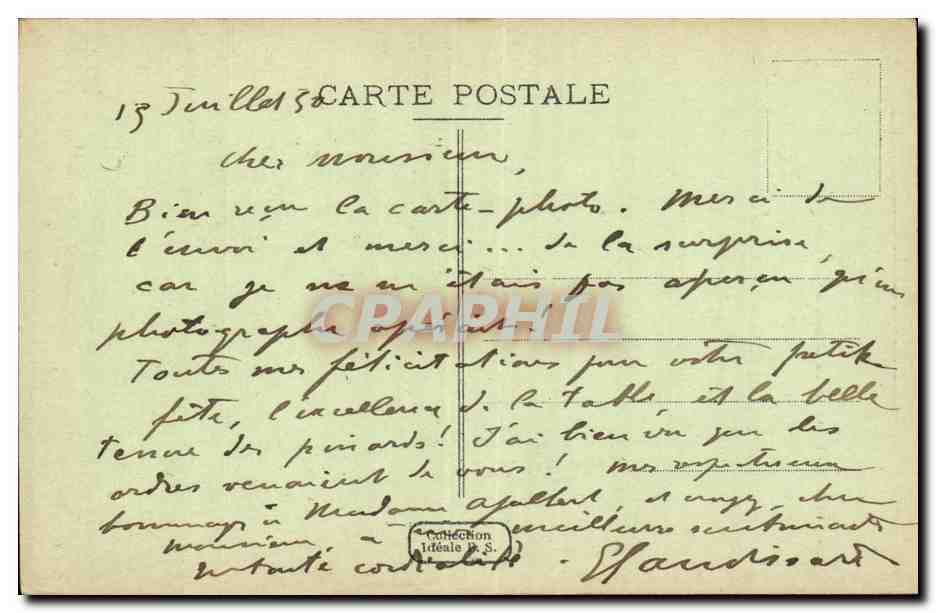 CARTE POSTALE
13 Juillet 30
Cher Monsieur,
Bien reçu la carte-photo. Merci de
l'envoi et merci... de la surprise,
car je ne m'étais pas aperçu qu'un
photographe opérait!
CPAPHIL
Toutes mes félicitations pour votre petite
fête, l'excellence de la table, et la belle
tenue des pinards! J'ai bien vu que les
ordres venaient de vous! Mes respectueux
hommages à Madame Ajalbert, et croyez, cher
Monsieur, à meilleurs sentiments
en toute cordialité
Collection
Idéale P. S.